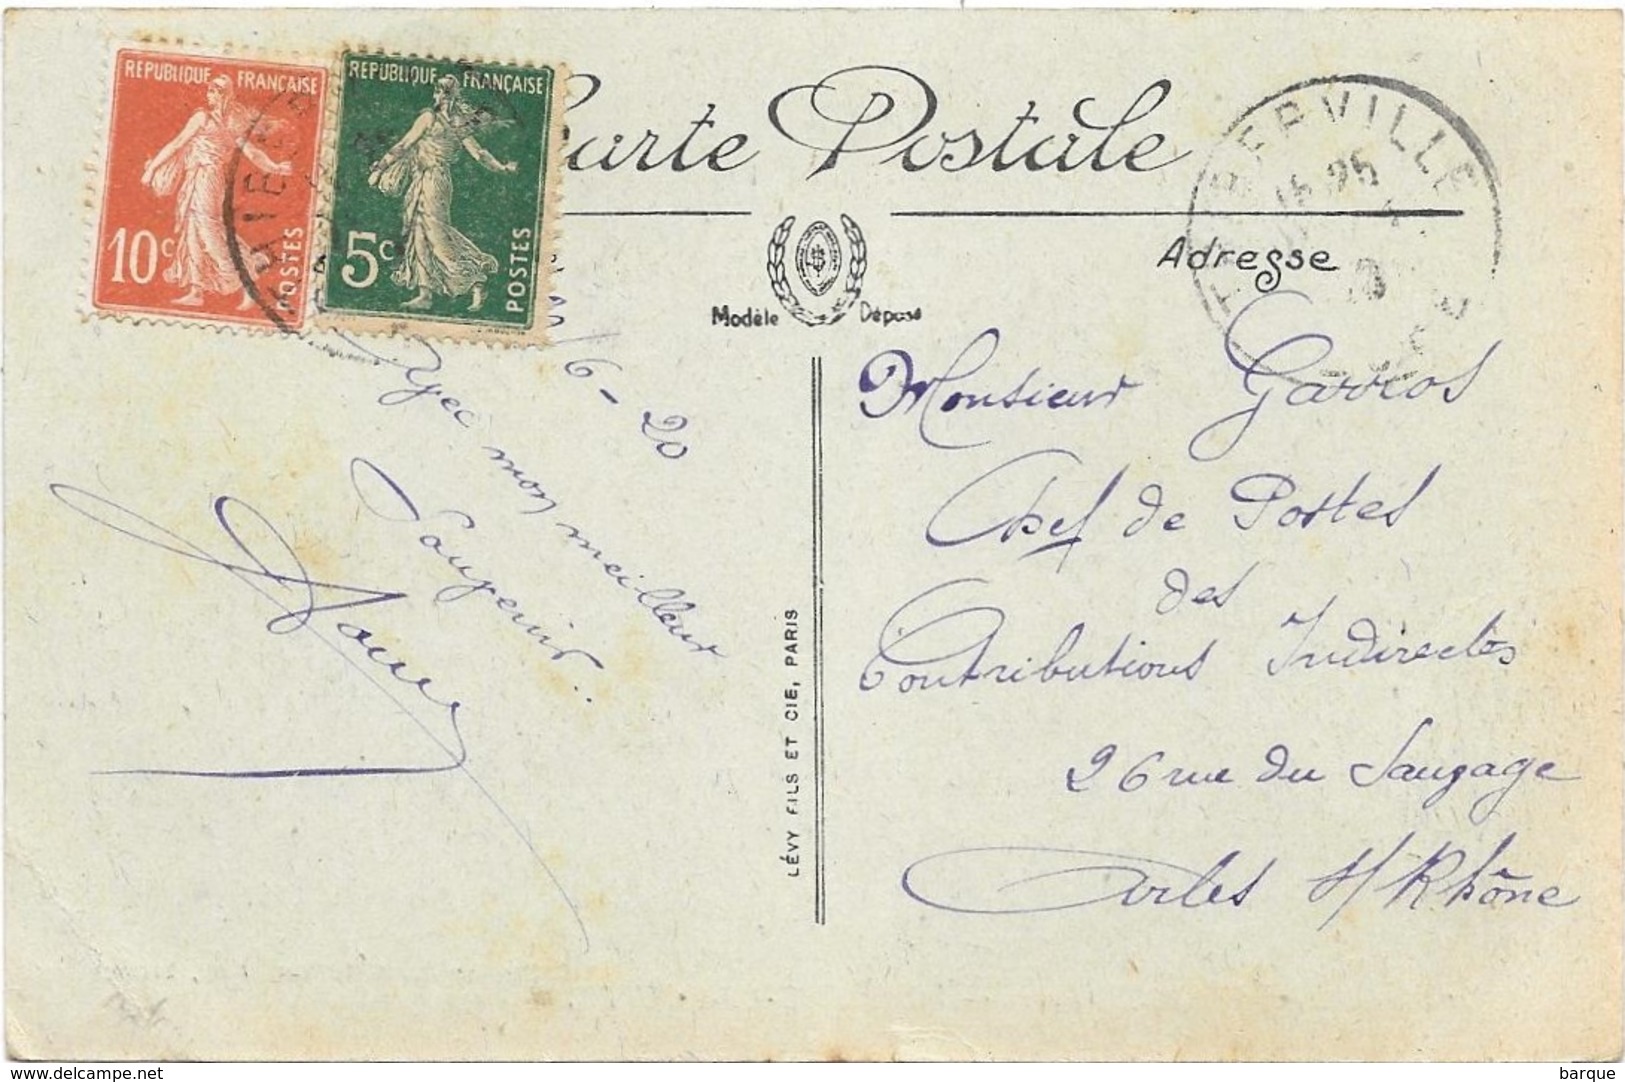 RÉPUBLIQUE FRANÇAISE
10c
POSTES
RÉPUBLIQUE FRANÇAISE
5c
POSTES
Carte Postale
Modèle Déposé
Adresse
/6-20
Avec mon meilleur
Souvenir..
LÉVY FILS ET CIE, PARIS
Monsieur Garros
Chef de Postes
des
Contributions Indirectes
26 rue du Sauzage
Arles s/Rhône
www.delcampe.net
barque